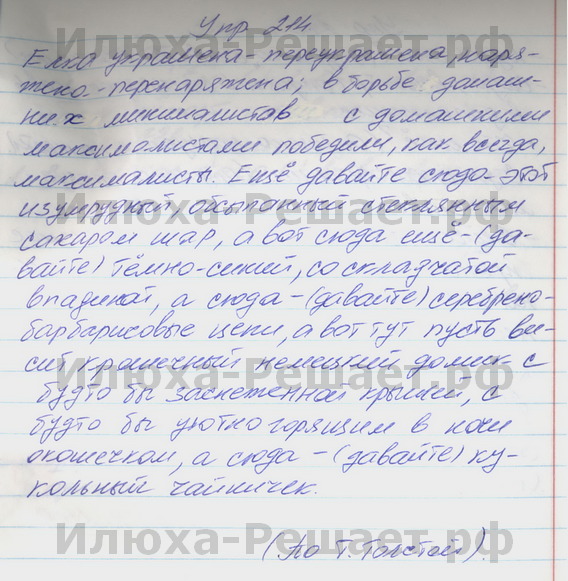 Упр 214
Илюха-Решает.рф
Елка украшена-переукрашена, наря-
жена-перенаряжена; в борьбе домаш-
них минималистав с домашними
максималистами победили, как всегда,
максималисты. Ещё давайте сюда этот
изумрудный, обсыпанный стеклянным
сахаром шар, а вот сюда ещё-(да-
вайте) тёмно-синий, со складчатой
впадиной, а сюда-(давайте) серебрено-
барбарисовые цепи, а вот тут пусть ви-
сит крошечный немецкий домик с
Илюха-Решает.рф
будто бы заснеженной крышей, с
будто бы уютно горящим в ночи
окошечком, а сюда-(давайте) ку-
кольный чайничек.
Илюха-Решает.рф
(По Т. Толстой).